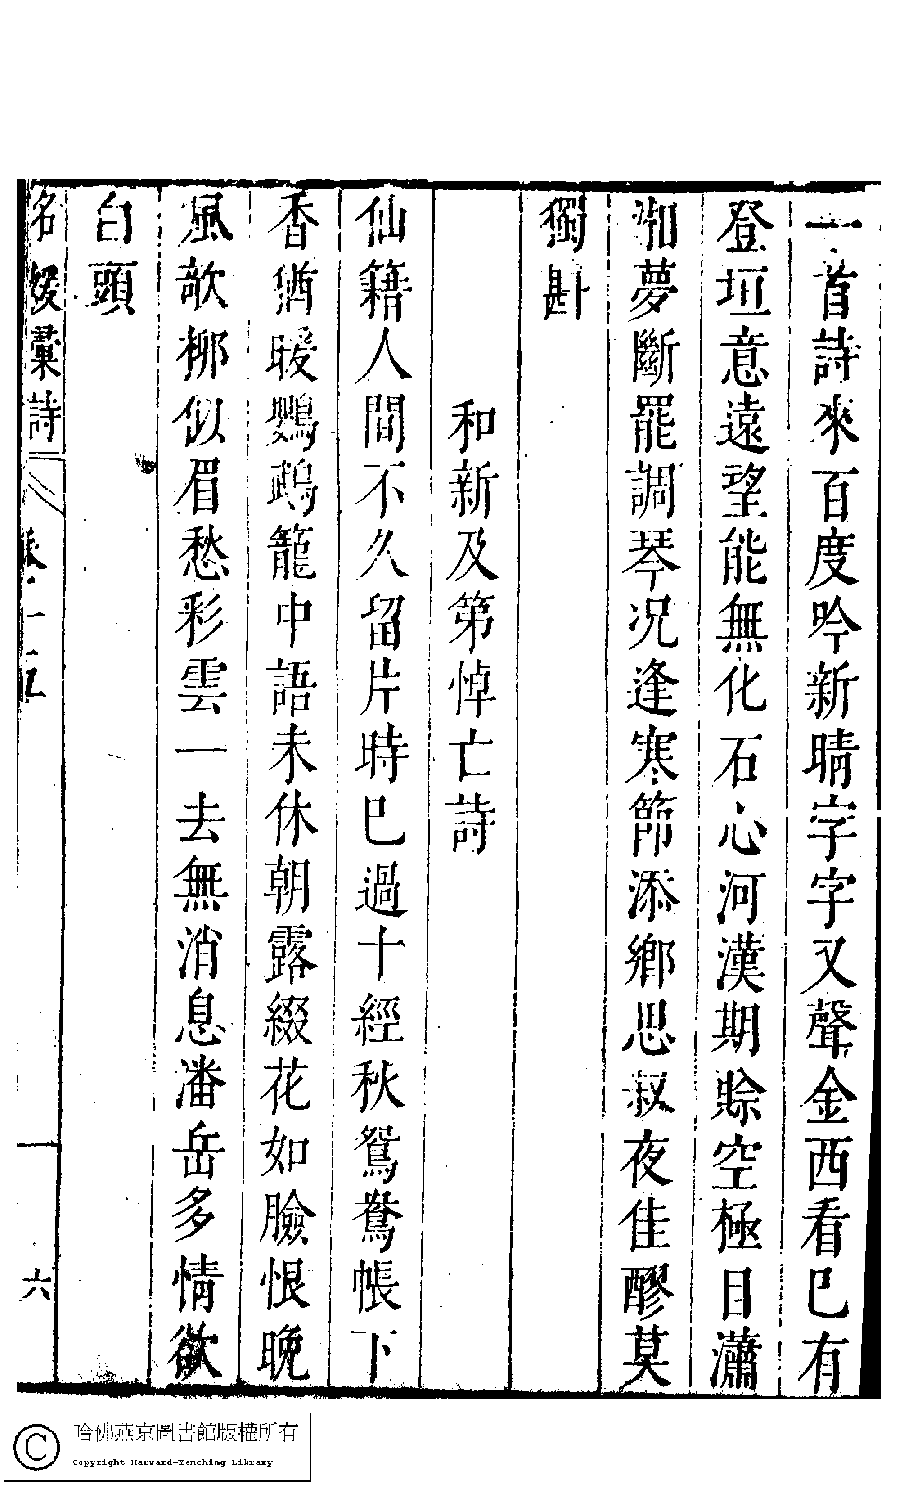 一首詩來百度吟新晴字字又聲金西看已有
登垣意遠望能無化石心河漢期賒空極目瀟
湘夢斷罷調琴况逢寒節添鄉思叔夜佳醪莫
獨斟
和新及第悼亡詩
仙籍人間不久留片時已過十經秋鴛鴦帳下
香猶暖鸚鵡籠中語未休朝露綴花如臉恨晚
風欹柳似眉愁彩雲一去無消息潘岳多情欲
白頭
名媛彙詩 卷十五 六
哈佛燕京圖書館版權所有
Copyright Harvard-Yenching Library